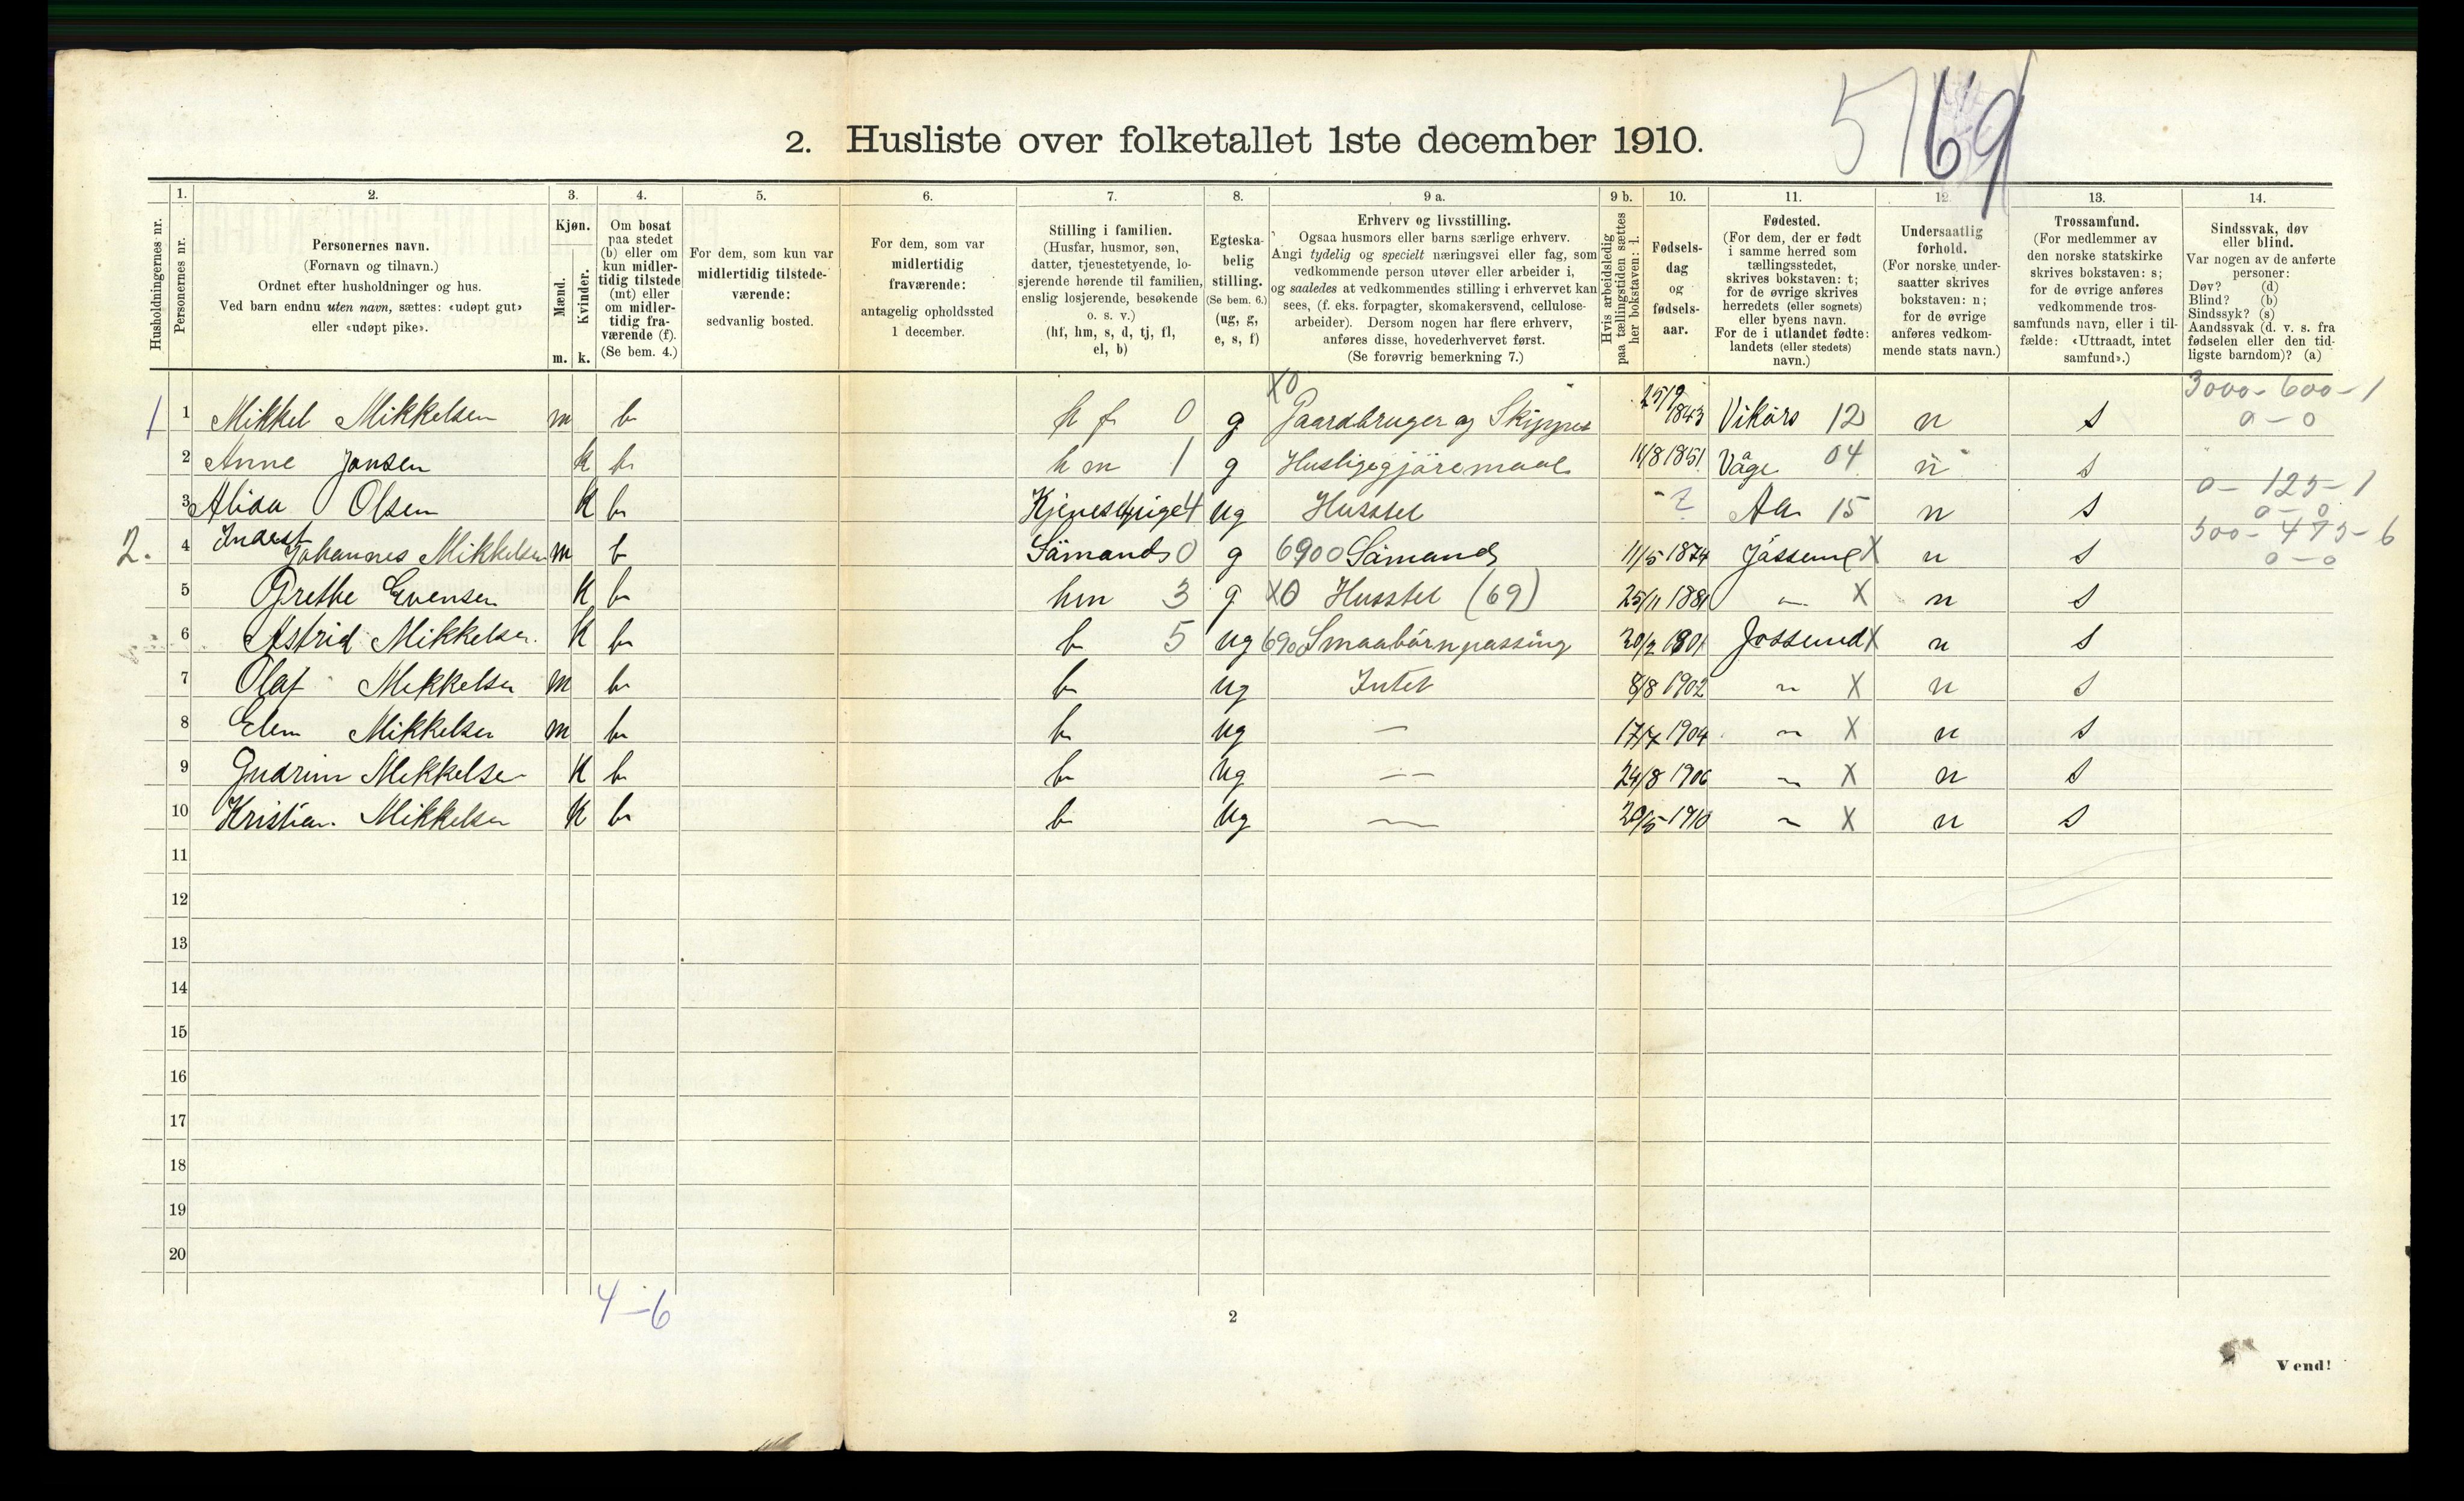 5769
2. Husliste over folketallet 1ste december 1910.
1. 2. 3. 4. 5. 6. 7. 8. 9 a. 9 b. 10. 11. 12. 13. 14.
Husholdningernes nr.
Personernes nr.
Personernes navn.
(Fornavn og tilnavn.)
Ordnet efter husholdninger og hus.
Ved barn endnu uten navn, sættes: «udøpt gut»
eller «udøpt pike».
Kjøn.
Mænd.
Kvinder.
m. k.
Om bosat
paa stedet
(b) eller om
kun midler-
tidig tilstede
(mt) eller
om midler-
tidig fra-
værende (f).
(Se bem. 4.)
For dem, som kun var
midlertidig tilstede-
værende:
sedvanlig bosted.
For dem, som var
midlertidig
fraværende:
antagelig opholdssted
1 december.
Stilling i familien.
(Husfar, husmor, søn,
datter, tjenestetyende, lo-
sjerende hørende til familien,
enslig losjerende, besøkende
o. s. v.)
(hf, hm, s, d, tj, fl,
el, b)
Egteska-
belig
stilling.
(Se bem. 6.)
(ug, g,
e, s, f)
Erhverv og livsstilling.
Ogsaa husmors eller barns særlige erhverv.
Angi tydelig og specielt næringsvei eller fag, som
vedkommende person utøver eller arbeider i,
og saaledes at vedkommendes stilling i erhvervet kan
sees, (f. eks. forpagter, skomakersvend, cellulose-
arbeider). Dersom nogen har flere erhverv,
anføres disse, hovederhvervet først.
(Se forøvrig bemerkning 7.)
Hvis arbeidsledig
paa tællingstiden sættes
her bokstaven: l.
Fødsels-
dag
og
fødsels-
aar.
Fødested.
(For dem, der er født
i samme herred som
tællingsstedet,
skrives bokstaven: t;
for de øvrige skrives
herredets (eller sognets)
eller byens navn.
For de i utlandet fødte:
landets (eller stedets)
navn.)
Undersaatlig
forhold.
(For norske under-
saatter skrives
bokstaven: n;
for de øvrige
anføres vedkom-
mende stats navn.)
Trossamfund.
(For medlemmer av
den norske statskirke
skrives bokstaven: s;
for de øvrige anføres
vedkommende tros-
samfunds navn, eller i til-
fælde: «Uttraadt, intet
samfund».)
Sindssvak, døv
eller blind.
Var nogen av de anførte
personer:
Døv? (d)
Blind? (b)
Sindssyk? (s)
Aandssvak (d. v. s. fra
fødselen eller den tid-
ligste barndom)? (a)
1 1 Mikkel Mikkelsen m b hf 0 g X0 Gaardbruger og Skipper 25/9 1843 Vikörs 12 n s 3000-600-1 0-0
2 Anne Jonsen k b hm 1 g Husligegjöremaal 11/8 1851 Våge 04 n s
3 Alida Olsen K b Kjenestpige 4 ug Husstel ? Aa 15 n s 0-125-1 0-0
2. 4 Inderst Johannes Mikkelsen m b Sämands 0 g 6900 Sämands 11/5 1874 Jössund X n s 500-475-6 0-0
5 Grethe Evensen K b hm 3 g X0 Husstel (69) 25/11 1881 " X n s
6 Astrid Mikkelsen K b b 5 ug 6900 Smaabörnpassing 20/2 1901 Jossund X n s
7 Olaf Mikkelsen m b b ug Intet 8/8 1902 " X n s
8 Elen Mikkelsen m b b ug — 17/7 1904 " X n s
9 Gudrun Mikkelsen K b b ug — 24/8 1906 " X n s
10 Kristian Mikkelsen K b b ug — 20/5 1910 " X n s
11
12
13
14
15
16
17
18
19
20
4-6
2
Vend!